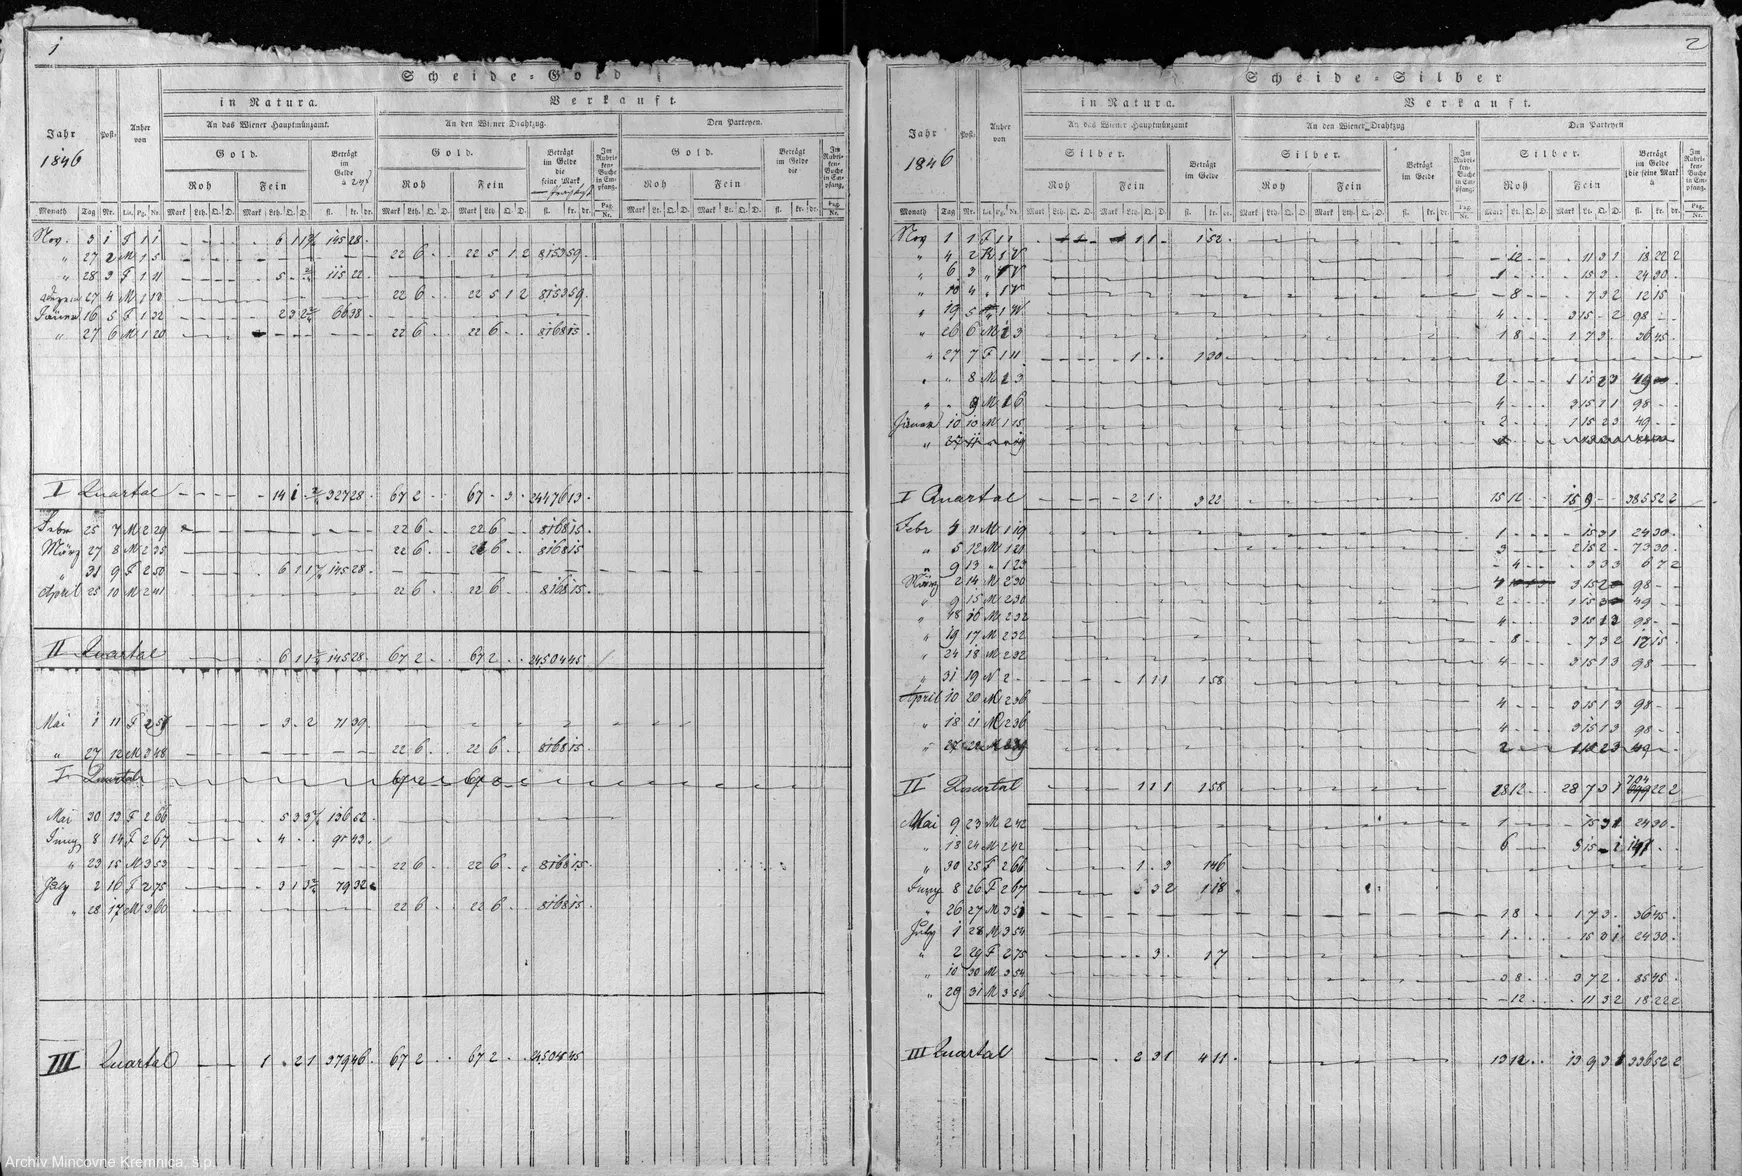 1
Scheide-Gold
in Natura.
Verkauft.
An das Wiener Hauptmünzamt.
An den Wiener Drahtzug.
Den Parteyen.
Jahr
1846
Post-
Anher von
Gold.
Beträgt im Gelde
Gold.
Beträgt im Gelde die feine Mark
Im Rubriken-Buche in Empfang.
Gold.
Beträgt im Gelde die
Im Rubriken-Buche in Empfang.
Roh Fein
Roh Fein
Roh Fein
Monath Tag Nr. Lit. Pg. Nr. Mark Lth. Q. D. Mark Lth. Q. D. fl. kr. dr. Mark Lth. Q. D. Mark Lth. Q. D. fl. kr. dr. Pag. Nr. Mark Lt. Q. D. Mark Lt. Q. D. fl. kr. dr. Pag. Nr.
Nov. 3 1 F 1 1 145 28
" 27 2 M 1 5 22 6 22 5 1 2 8153 59
" 28 3 F 1 11 115 22
27 4 M 1 13 22 6 22 5 1 2 8153 59
Jäner 16 5 F 1 32 66 38
" 27 6 M 1 20 22 6 22 6 8168 15
I Quartal 14 1 327 28 67 2 67 3 24476 13
Febr 25 7 M 2 29 22 6 22 6 8168 15
März 27 8 M 2 35 22 6 22 6 8168 15
" 31 9 F 2 50 145 28
April 25 10 M 2 41 22 6 22 6 8168 15
II Quartal 145 28 67 2 67 2 24504 45
Mai 1 11 F 2 3 2 71 39
" 27 12 M 3 48 22 6 22 6 8168 15
I Quartal 67 2 67 2
Mai 30 13 F 2 66 136 52
Juny 8 14 F 2 67 4 95 43
" 23 15 M 3 53 22 6 22 6 8168 15
July 2 16 F 2 75 79 32
" 28 17 M 3 60 22 6 22 6 8168 15
III Quartal 1 2 1 379 46 67 2 67 2 24504 45
2
Scheide-Silber
in Natura.
Verkauft.
An das Wiener Hauptmünzamt
An den Wiener Drahtzug
Den Parteyen
Jahr
1846
Post-
Anher von
Silber.
Beträgt im Gelde
Silber.
Beträgt im Gelde
Im Rubriken-Buche in Empfang.
Silber.
Beträgt im Gelde die feine Mark à
Im Rubriken-Buche in Empfang.
Roh Fein
Roh Fein
Roh Fein
Monath Tag Nr. Lit. Pg. Nr. Mark Lt. Q. D. Mark Lth. Q. D. fl. kr. dr. Mark Lth. Q. D. Mark Lth. Q. D. fl. kr. dr. Pag. Nr. Mark Lt. Q. D. Mark Lt. Q. D. fl. kr. dr. Pag. Nr.
Nov 1 1 F 1 1 1 1 1 52
" 4 2 12 11 3 1 18 22 2
" 6 3 1 15 3 24 30
" 10 4 8 7 3 2 12 15
" 19 5 4 3 15 2 98
" 26 6 M 2 3 1 8 1 7 3 36 45
" 27 7 F 1 11 1 1 30
" " 8 M 2 3 2 1 15 2 3 49
" " 9 M 1 6 4 3 15 1 1 98
Jäner 10 10 M 1 15 2 1 15 2 3 49
I Quartal 2 1 3 22 15 12 15 9 385 52 2
Febr 4 11 M 1 19 1 15 3 1 24 30
" 5 12 M 1 21 3 2 15 2 73 30
" 9 13 " 1 23 4 3 3 3 6 7 2
März 2 14 M 2 30 4 3 15 2 98
" 9 15 M 2 30 2 1 15 3 49
" 18 16 M 2 32 4 3 15 1 2 98
" 19 17 M 2 32 8 7 3 2 12 15
" 24 18 M 2 32 4 3 15 1 3 98
" 31 19 N 2 1 1 1 1 58
April 10 20 M 2 36 4 3 15 1 3 98
" 18 21 M 2 36 4 3 15 1 3 98
" 27 22 M 2 39 2 1 15 2 3 49
II Quartal 1 1 1 1 58 28 12 28 7 3 1 704 22 2
Mai 9 23 M 2 42 1 15 3 1 24 30
" 18 24 M 2 42 6 5 15 147
" 30 25 F 2 66 1 3 1 46
Juny 8 26 F 2 67 3 2 1 18
" 26 27 M 3 51 1 8 1 7 3 36 45
July 1 28 M 3 54 1 15 3 1 24 30
" 2 29 F 2 75 3 1 7
" 10 30 M 3 54 3 8 3 7 2 85 45
" 29 31 M 3 56 12 11 3 2 18 22 2
III Quartal 2 3 1 4 11 13 12 13 9 3 1 336 52 2
Archiv Mincovne Kremnica, š.p.